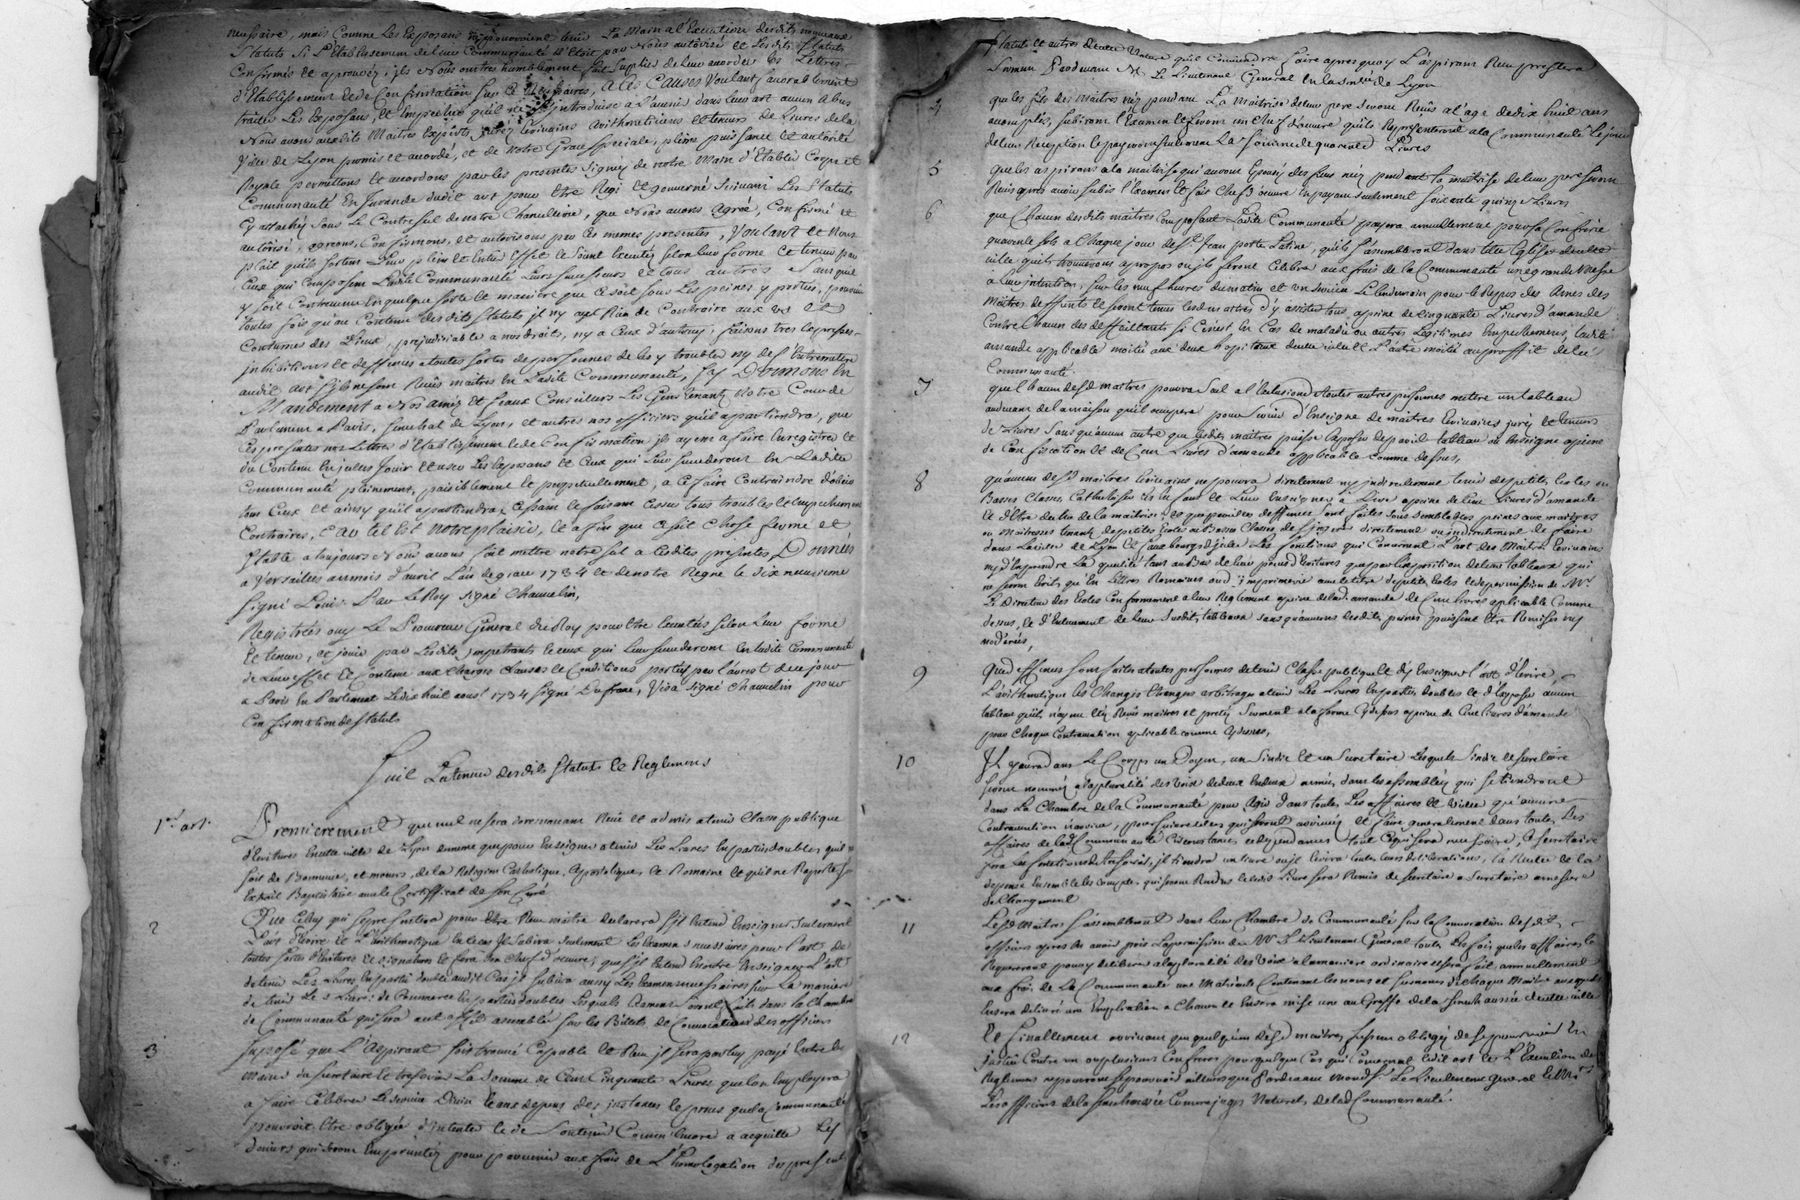 neussaire, mais Comme Les Exposans ny pouroient tenir La Main a l'Execution desdits nouveaux
Statuts Si L'Etablissement de leur Communauté N'Etoit par Nous autorisé et Lesdits Statuts
Confirmés et aprouvéz, ils Nous ont tres humblement fait Suplier de leur acorder les Lettres
d'Etablissement et de Confirmation sur ce Neussaires, A Ces Causes Voulant favorablement
traiter Les Exposans, et Empecher qu'il ne s'introduise a L'avenir dans leur art aucun Abus
Nous avons auxdits Maitres Experts jurés Ecrivains Arithmeticiens et teneurs de Livres de la
Ville de Lyon promis et acordé, et de Notre Grace Speciale, pleine puissance et autorité
Royale permettons et accordons par les presentes Signéz de notre Main d'Etablir Corps et
Communauté En Jurande dudit art pour Etre Regi et gouverné Suivant Les Statuts
Cy attachéz Sous Le Contrescel de notre Chancellerie, que Nous avons Agréé, Confirmé et
autorisé, agreons, Confirmons, et autorisons par Ces memes presentes, Voulant et Nous
plait qu'ils sortent Leur plein et Entier Effet et Soient Executéz Selon leur forme et teneur par
Ceux qui Composent Ladite Communauté Leurs Successeurs et tous autres Sans quil
y soit Contrevenu En quelque sorte et maniere que Ce soit sous Les peines y portées, pourvu
toutes fois qu'au Contenu desdits Statuts il n'y ayt Rien de Contraire aux us et
Coutumes des Lieux, prejudiciable a nos droits, ny a Ceux d'autruy; faisons tres Expresses
inhibitions et deffences a toutes sortes de personnes de les y troubler ny de S'Entremettre
audit art s'ils ne sont Reçûs maitres En Ladite Communauté, Sy Donnons En
Mandement a Nos améz et feaux Conseillers Les Gens tenants Notre Cour de
Parlement a Paris, Senechal de Lyon, et autres nos officiers qu'il apartiendra, que
Ces presentes nos Lettres d'Etablissement et de Confirmation ils ayent a faire Enregistrer et
du Contenu En jcelles Jouir et user Les Exposans et Ceux qui Leur Succederont En Ladite
Communauté pleinement, paisiblement et perpetuellement, a ce faire Contraindre d'obeir
tous Ceux et ainsy qu'il apartiendra, Cessant et faisant Cesser tous troubles et Empechemens
Contraires, Car tel Est notre plaisir, et afin que ce soit Chose ferme et
Stable a toujours Nous avons fait mettre notre Scel a Cesdites presentes, Données
a Versailles au mois d'avril L'an de grace 1734 et de notre Regne le dix neuvieme
Signé Louis. Par Le Roy Signé Chauvelin,
Registrées ouy Le Procureur General du Roy pour Etre Executées Selon Leur forme
Et teneur, et jouir par Lesdits impetrants et ceux qui Leur Succederont En Ladite Communauté
de Leur Effet et Contenu aux Charges Clauses et Conditions portées par L'arrest de ce jour
a Paris En Parlement Le dix huit aoust 1734 Signé Dufranc, Visa Signé Chauvelin pour
Confirmation de Statuts
Suit La teneur desdits Statuts et Reglemens
1er. art.
Premierement que nul ne sera doresnavant Reçû et admis a tenir Classe publique
d'Ecritures En cette ville de Lyon comme que pour Enseigner a tenir Les Livres En parties doubles qu'il ne
soit de Bonne vie, et mœurs, de la Religion Catholique, Apostolique, et Romaine et qu'il ne Raporte son
Extrait Baptistaire avec le Certifficat de son Curé
2
Que Celuy qui se presentera pour Etre Reçu maitre declarera s'il Entend Enseigner Seulement
L'art d'Ecrire et L'arithmetique En ce cas Il Subira Seulement Les Examens neussaires pour l'art de
toutes sortes d'Ecritures et signatures et fera son Chef d'œuvre; que s'il Entend Encore Enseigner L'art
de tenir Les Livres En partie double audit Cas il Subira aussy Les Examens neussaires sur La maniere
de tenir Les Livres de Commerce En parties doubles Lesquels Examens seront faits dans la Chambre
de Communauté qui sera a cet effet asemblée sur les Billets de Convocation des officiers
3
Suposé que L'Aspirant soit trouvé Capable et Reçu il sera par luy payé Entre les
Mains du Secretaire et tresorier La Somme de Cent Cinquante Livres que lon Employera
a faire Celebrer Le Service Divin et aux depens des instances et procès que la Communauté
pourroit Etre obligée d'intenter et de Soutenir Comm' Encore a acquitter Les
deniers qui seront Empruntéz pour parvenir aux frais de L'homologation des presents
Statuts et autres de cette Nature qu'il Conviendra faire apres quoy L'Aspirant Reçu prestera
Serment Pardevant Mr. Le Lieutenant General En la Senéée de Lyon
4
que les fils des Maitres néz pendant La Maitrise de leur pere seront Reçûs a l'age de dix huit ans
accomplis, Subiront l'Examen et feront un Chef d'œuvre qu'ils Representeront a la Communauté Le jour
de leur Reception et payeront seulement La Somme de quarante Livres
5
que les aspirans a la maitrise qui auront Epousé des filles néez pendant la maitrise de leur pere seront
Reçus apres avoir subis l'Examen et fait Chef d'œuvre En payant seulement soixante quinze Livres
6
que Chacun desdits maitres Composant Ladite Communauté payera annuellement pour sa Confrérie
quarante sols a Chaque jour de St. Jean porte Latine, qu'ils s'assembleront dans telle Eglise de cette
ville qu'ils trouveront a propos ou ils feront Celebrer aux frais de la Communauté une grande Messe
a leur intention, sur les neuf heures du matin et un Service Le lendemain pour le Repos des Ames des
Maitres deffunts et seront tenus lesdits maitres d'y assister tous a peine de Cinquante Livres d'amande
Contre Chacun des deffaillants si ce n'est En Cas de maladie ou autres Legitimes Empechemens, ladite
amande applicable moitié aux deux hopitaux de cette ville et L'autre moitié au proffit de la
Communauté.
7
que Chacun desd. maitres pourra seul a l'Exclusion de toutes autres personnes mettre un tableau
au devant de la maison qu'il occupera pour servir d'Enseigne de maitres Ecrivains juréz et teneurs
de Livres Sans qu'aucun autre que lesdits maitres puisse Exposer de pareil tableau ou Enseigne a peine
de Confiscation et de Cent Livres d'amande applicable comme dessus,
8
qu'aucun desd. maitres Ecrivains ne pourra directement ny indirectement tenir des petites Ecoles ou
Basses Classes, Catholiser les Enfans et Leur Enseigner a Lire a peine de Cent Livres d'amande
Et d'Etre dechu de la maitrise; Les quelles deffences sont faites sous semblables peines aux maitres
ou maitresses tenants des petites Ecoles ou Basses Classes de s'ingerer directement ou indirectement de faire
dans La ville de Lyon et fauxbourgs d'icelle Les fonctions qui Concernent L'art des Maitres Ecrivains
ny d'En prendre La qualité tant au Bas de leur pieces d'Ecritures que par L'Exposition de leur tableaux qui
ne seront Ecrits qu'En Lettres Romaines ou d'imprimerie avec le titre de petites Ecoles et de permission de Mr.
Le Directeur des Ecoles Conformement a leur Reglement a peine de lad. amande de Cent Livres aplicable Comme
dessus, et d'Enlevement de Leur Susdits tableaux sans qu'aucunes desdites peines puissent Etre Remises ny
moderées,
9
Que deffences sont faites a toutes personnes de tenir Classe publique et d'y Enseigner l'art d'Ecrire,
L'arithmetique les Changes Etrangers arbitrages et tenir Les Livres En parties doubles et d'Exposer aucun
tableau qu'ils n'ayent Eté Reçûs maitres et preté Serment a la forme Cy dessus a peine de Cent Livres d'amande
pour Chaque Contravention aplicable comme Cy dessus,
10
Il y aura dans Le Corps un Doyen, un Sindic et un Secretaire Lesquels Sindic et Secretaire
seront nomméz a la pluralité des Voix de deux En deux années, dans les assemblées qui se tiendront
dans La Chambre de la Communauté pour Agir dans toutes Les affaires et Veiller qu'aucune
Contravention n'arrive, poursuivre celles qui seront arrivées et faire generalement dans toutes Les
affaires de Lad. Communauté Circonstances et dependances tout Ce qui sera neussaire, et Secretaire
fera Les fonctions de tresorier, il tiendra un Livre ou il Ecrira toutes leurs deliberations, la Recette et la
depense Ensemble les Comptes qui seront Rendus lequel Livre sera Remis de Secretaire a Secretaire avec acte
de Chargement
11
Lesd. Maitres s'assembleront dans leur Chambre de Communauté sur la Convocation desdits
officiers apres En avoir pris La permission de Mr. Le Lieutenant General toutes Les fois que les affaires le
Requereront pour y deliberer a la pluralité Des Voix a la maniere ordinaire et sera fait annuellement
aux frais de La Communauté une Matricule Contenant les noms et surnoms de Chaque Maitre auxquels
En sera delivré une Expedition a Chacun et En sera mise une au Greffe de la Senechaussée de cette ville
12
Et finallement arrivant que quelqu'un desd. maitres fussent obligéz de se pourvoir En
justice Contre un ou plusieurs Confreres pour quelque Cas qui Concernat Ledit art et L'Execution des
Reglemens ne pourront se pourvoir ailleurs que Pardevant mondit Sr. Le Lieutenant General et Mrs.
Les officiers de la Senechaussée Comme juges Naturels de lad. Communauté.